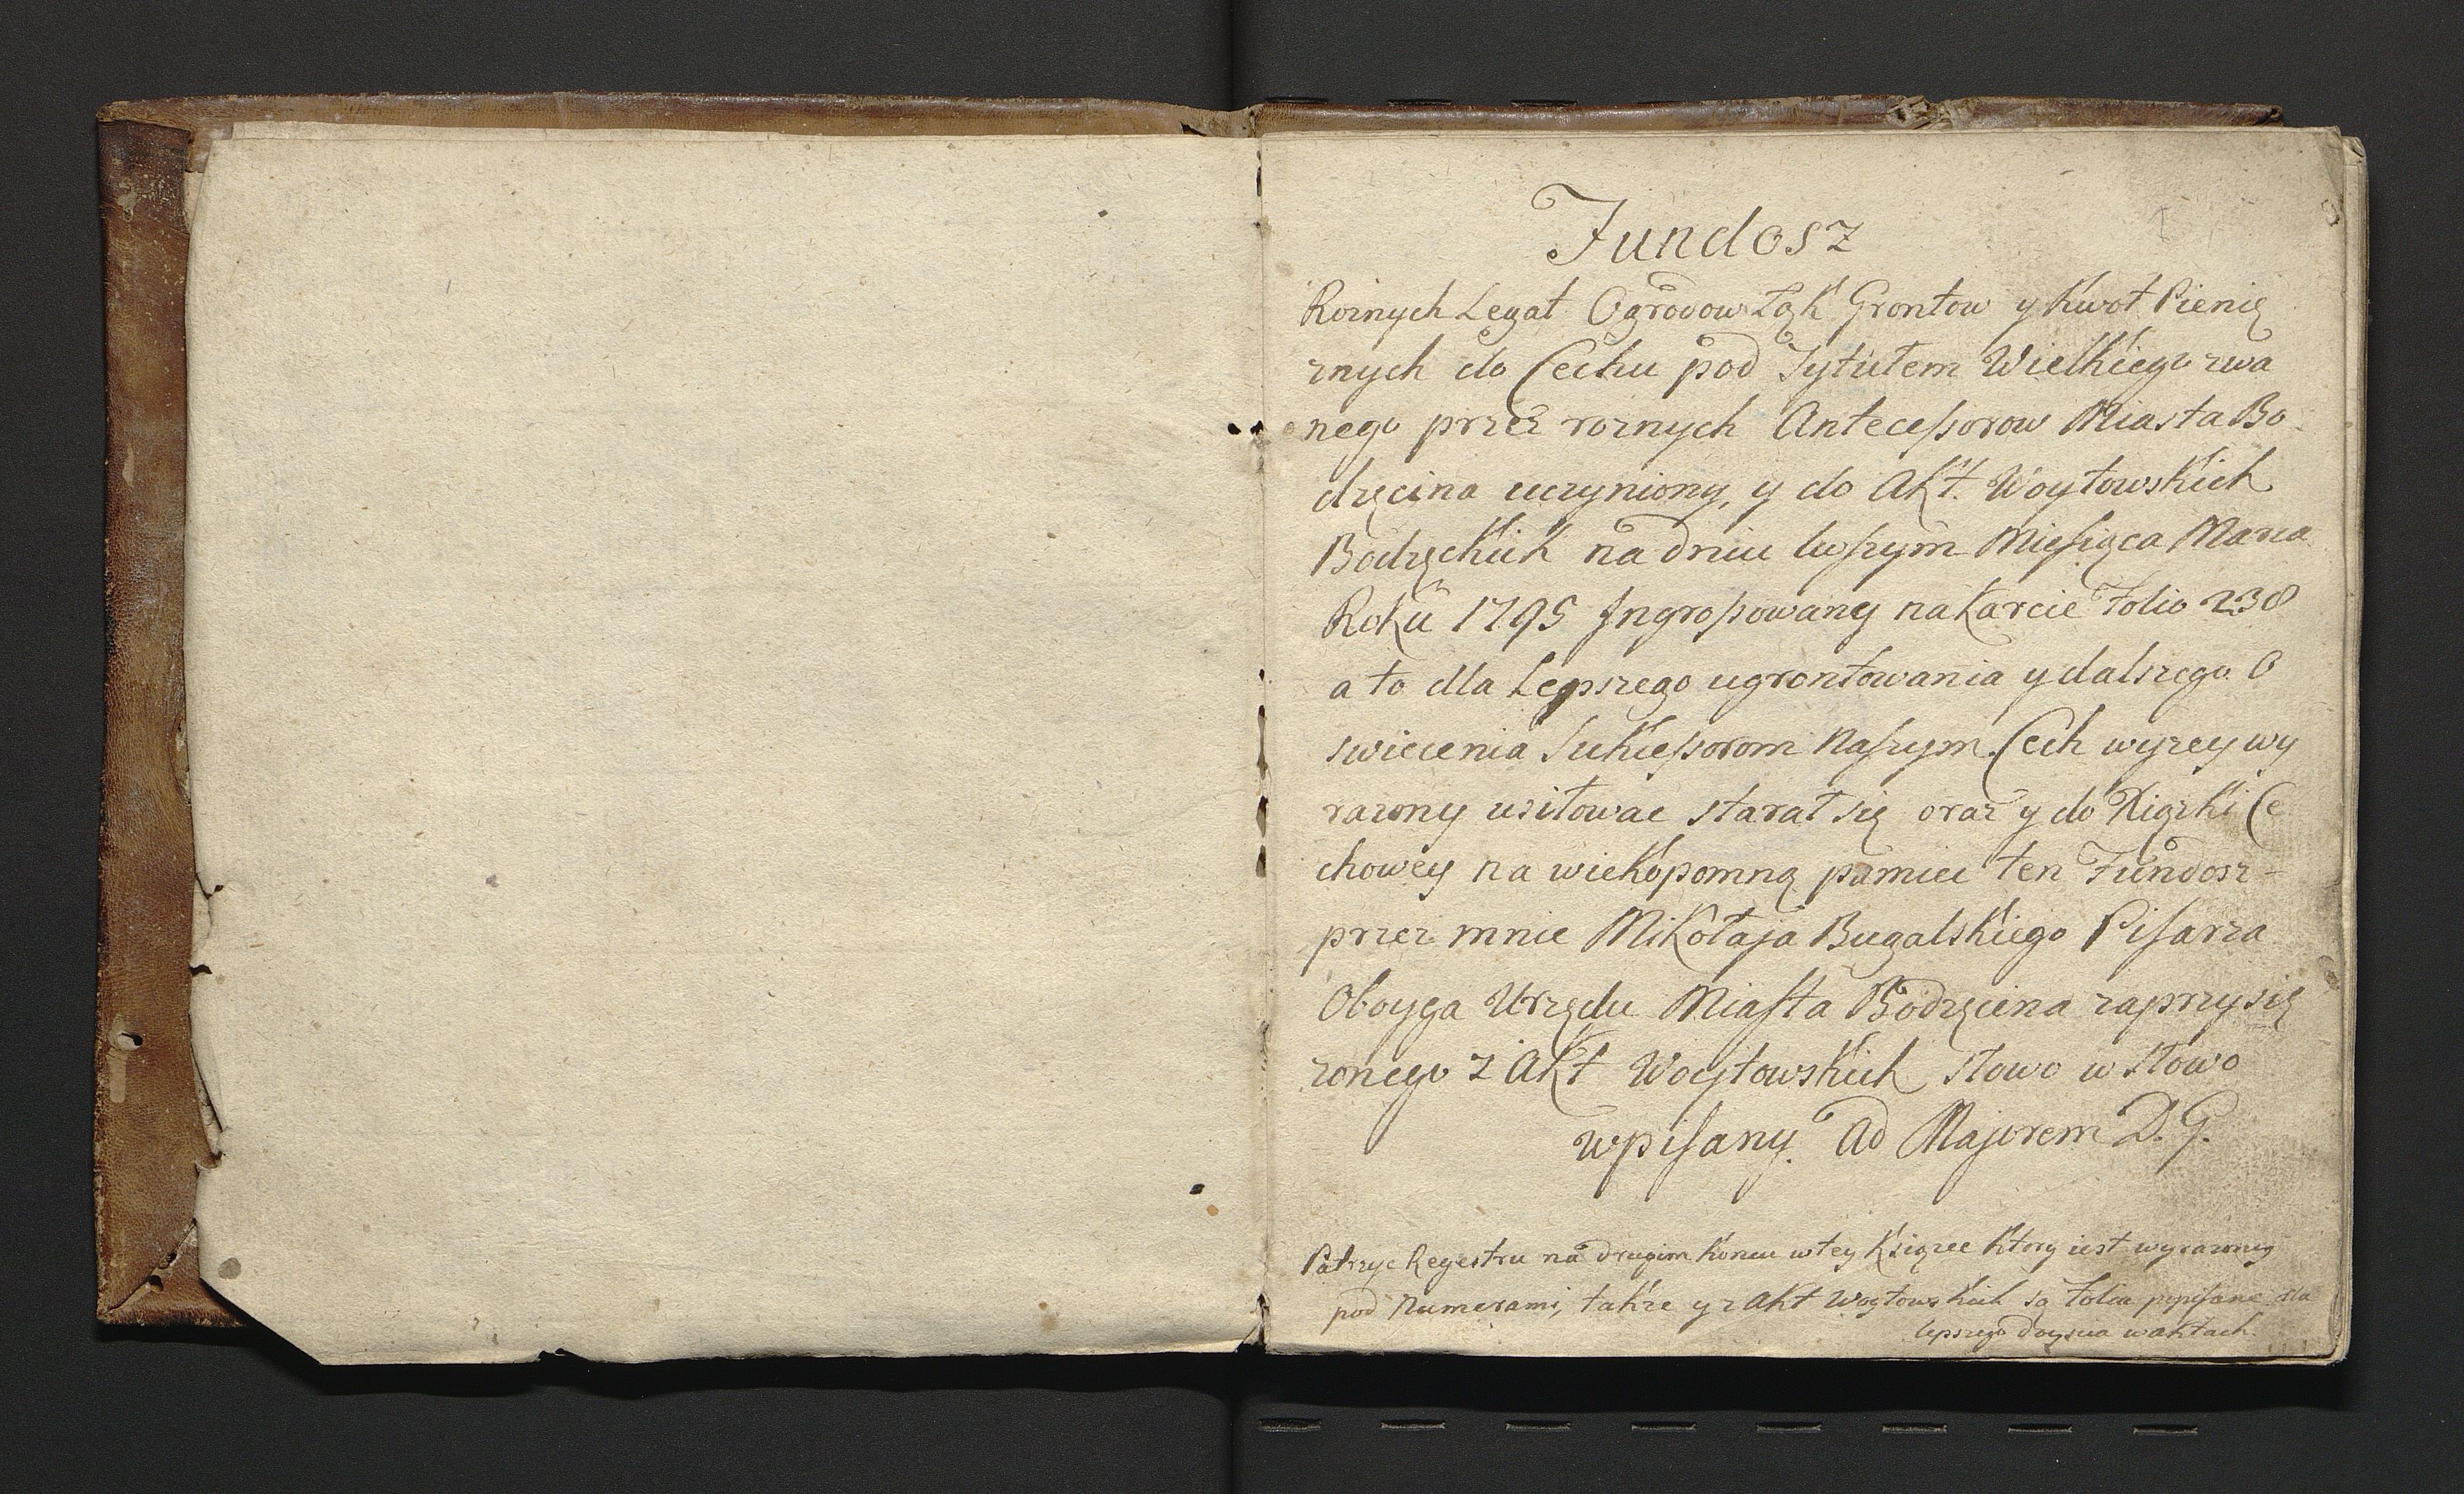 Fundosz
Roznych Legat Ogrodow Łąk Grontow y Kwot Pienię
znych do Cechu pod Tytułem Wielkiego zwa
nego przez roznych Antecessorow Miasta Bo
dzęcina uczyniony, y do Akt. Woytowskich
Bodzęckich na dniu Miesiąca Marca
Roku 1795 Ingrossowany na Karcie Folio 238
a to dla Lepszego ugrontowania y dalszego O
swiecenia Sukcessorom Naszym. Cech wyzey wy
razony usitowac starał się oraz y do Xiązki Ce
chowey na wiekopomną pamiec ten Fundosz -
przez mnie Mikołaja Bugalskiego Pisarza
Oboyga Urzędu Miasta Bodzęcina zaprzysię
zonego z Akt Woytowskich słowo w słowo
wpisany. Ad Majorem D. G.
Patrzyc Regestru na drugim koncu w tey Księzce Ktory iest wyrazony
pod Numerami, takze y z Akt Woytowskich są Folia popisane dla
lepszego doyscia w aktach.